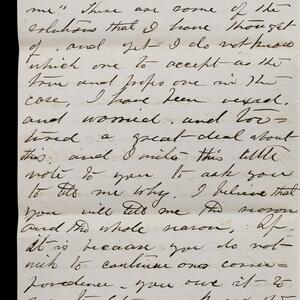 me" These are some of the
solutions that I have thought
of, and yet I do not know
which one to accept as the
true and proper one in the
case, I have been vexed,
and worried, and tor-
tured a great deal about
this, and I write this little
note to you to ask you
to tell me why. I believe that
you will tell me the reason
and the whole reason, If
it is because you do not
wish to continue our corres-
pondence, you owe it to